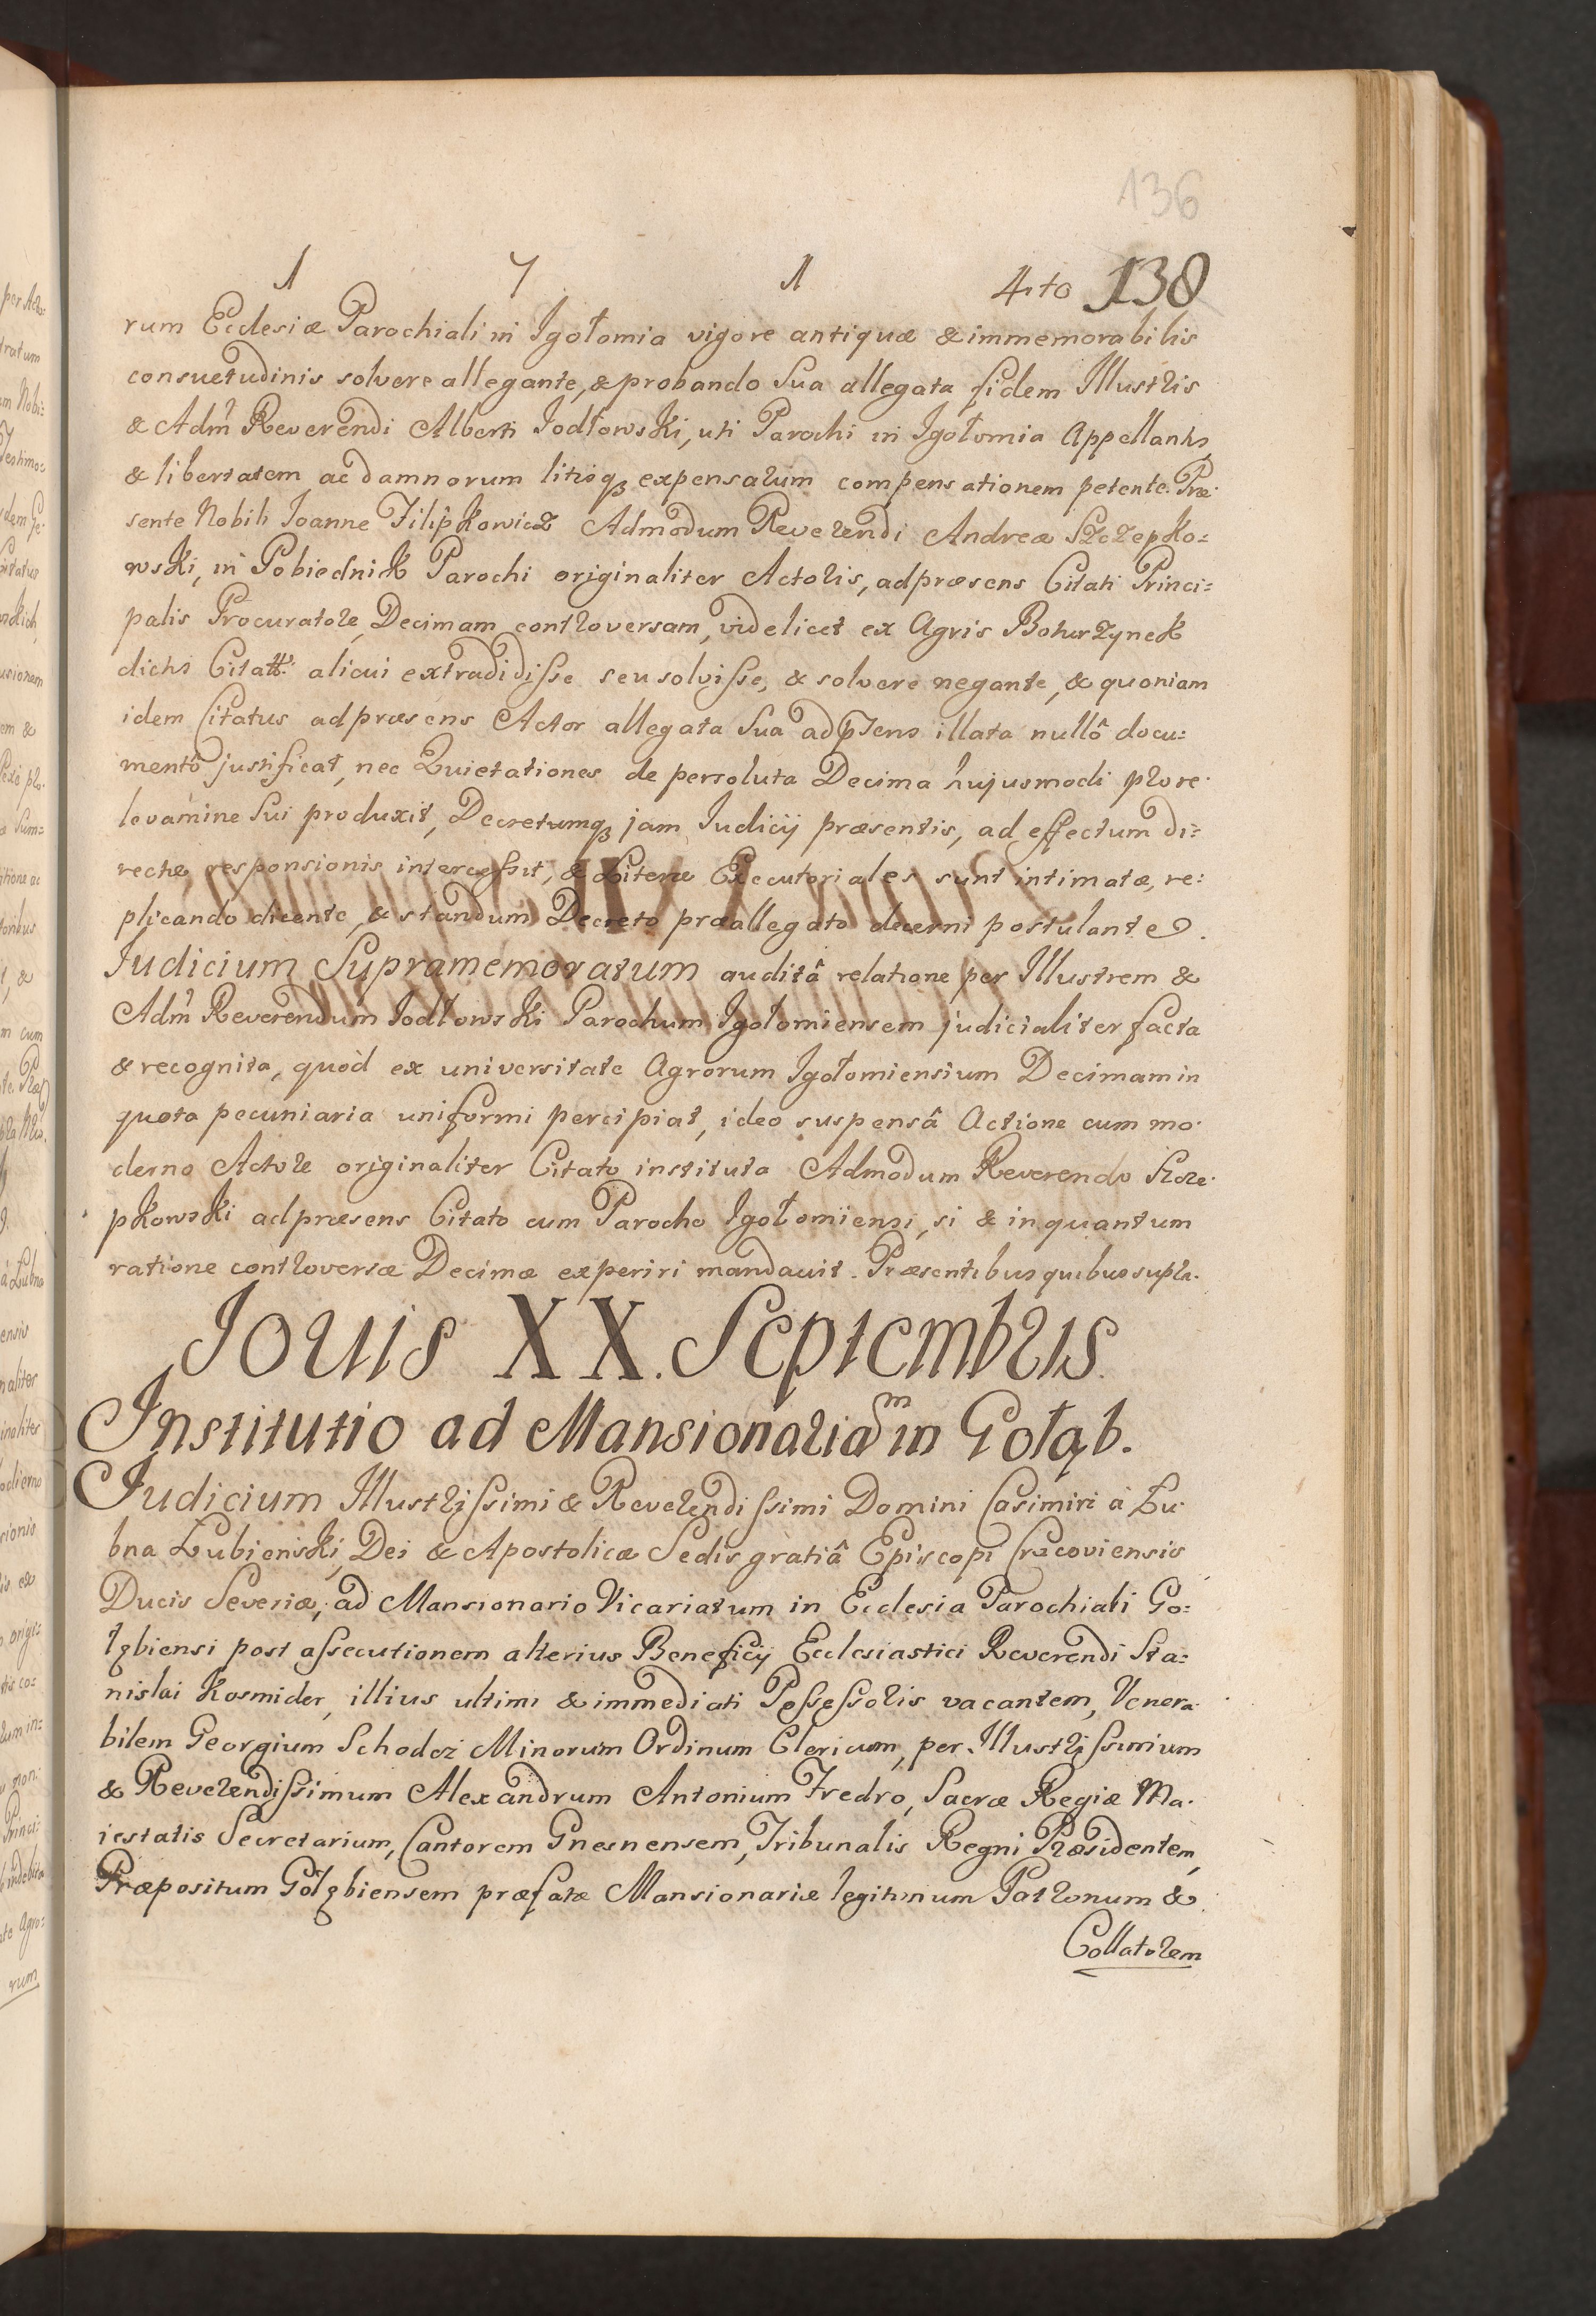 136
1 7 1 4to 138
rum Ecclesiæ Parochiali in Igołomia vigore antiquæ & immemorabilis
consuetudinis solvere allegante, & probando Sua allegata fidem Illustris
& Adm̃ Reverendi Alberti Jodłowski, uti Parochi in Igołomia Appellantis,
& libertatem ac damnorum litisq3 expensarum compensationem petente. Præ-
sente Nobili Joanne Filipkowicz Admodum Reverendi Andreæ Szczepko=
wski, in Pobiednik Parochi originaliter Actoris, ad præsens Citati Princi=
palis Procuratore, Decimam controversam, videlicet ex Agris
dicti alicui extradidisse seu solvisse, & solvere negante, & quoniam
idem Citatus ad præsens Actor allegata Sua ad illata nullô docu=
mentô justificat, nec Quietationes de persoluta Decima hujusmodi pro re-
levamine Sui produxit, Decretumq3 jam Judicij præsentis, ad effectum di=
rectæ responsionis intercessit, & Literæ Executoriales sunt intimatæ, re=
plicando dicente, & standum Decreto præallegato decerni postulante.
Judicium Supramemoratum auditâ relatione per Illustrem &
Adm̃ Reverendum Jodłowski Parochum Igołomiensem judicialiter facta
& recognita, quòd ex universitate Agrorum Igołomiensium Decimam in
quota pecuniaria uniformi percipiat, ideo suspensâ Actione cum mo-
derno Actore originaliter Citato instituta Admodum Reverendo Szcze-
pkowski ad præsens Citato cum Parocho Igołomiensi, si & in quantum
ratione controversæ Decimæ experiri mandavit. Præsentibus quibus supra.
Jovis XX. Septembris.
Institutio ad Mansionariam in Gołąb.
Judicium Illustrissimi & Reverendissimi Domini Casimiri à Łu-
bna Łubienski, Dei & Apostolicæ Sedis gratiâ Episcopi Cracoviensis
Ducis Severiæ, ad Mansionario Vicariatum in Ecclesia Parochiali Go=
łębiensi post assecutionem alterius Beneficij Ecclesiastici Reverendi Sta=
nislai Kosmider, illius ultimi & immediati Possessoris vacantem, Venera-
bilem Georgium Schodcz Minorum Ordinum Clericum, per Illustrissimum
& Reverendissimum Alexandrum Antonium Fredro, Sacræ Regiæ Ma-
iestatis Secretarium, Cantorem Gnesnensem, Tribunalis Regni Præsidentem,
Præpositum Gołębiensem præfatæ Mansionariæ legitimum Patronum &
Collatorem